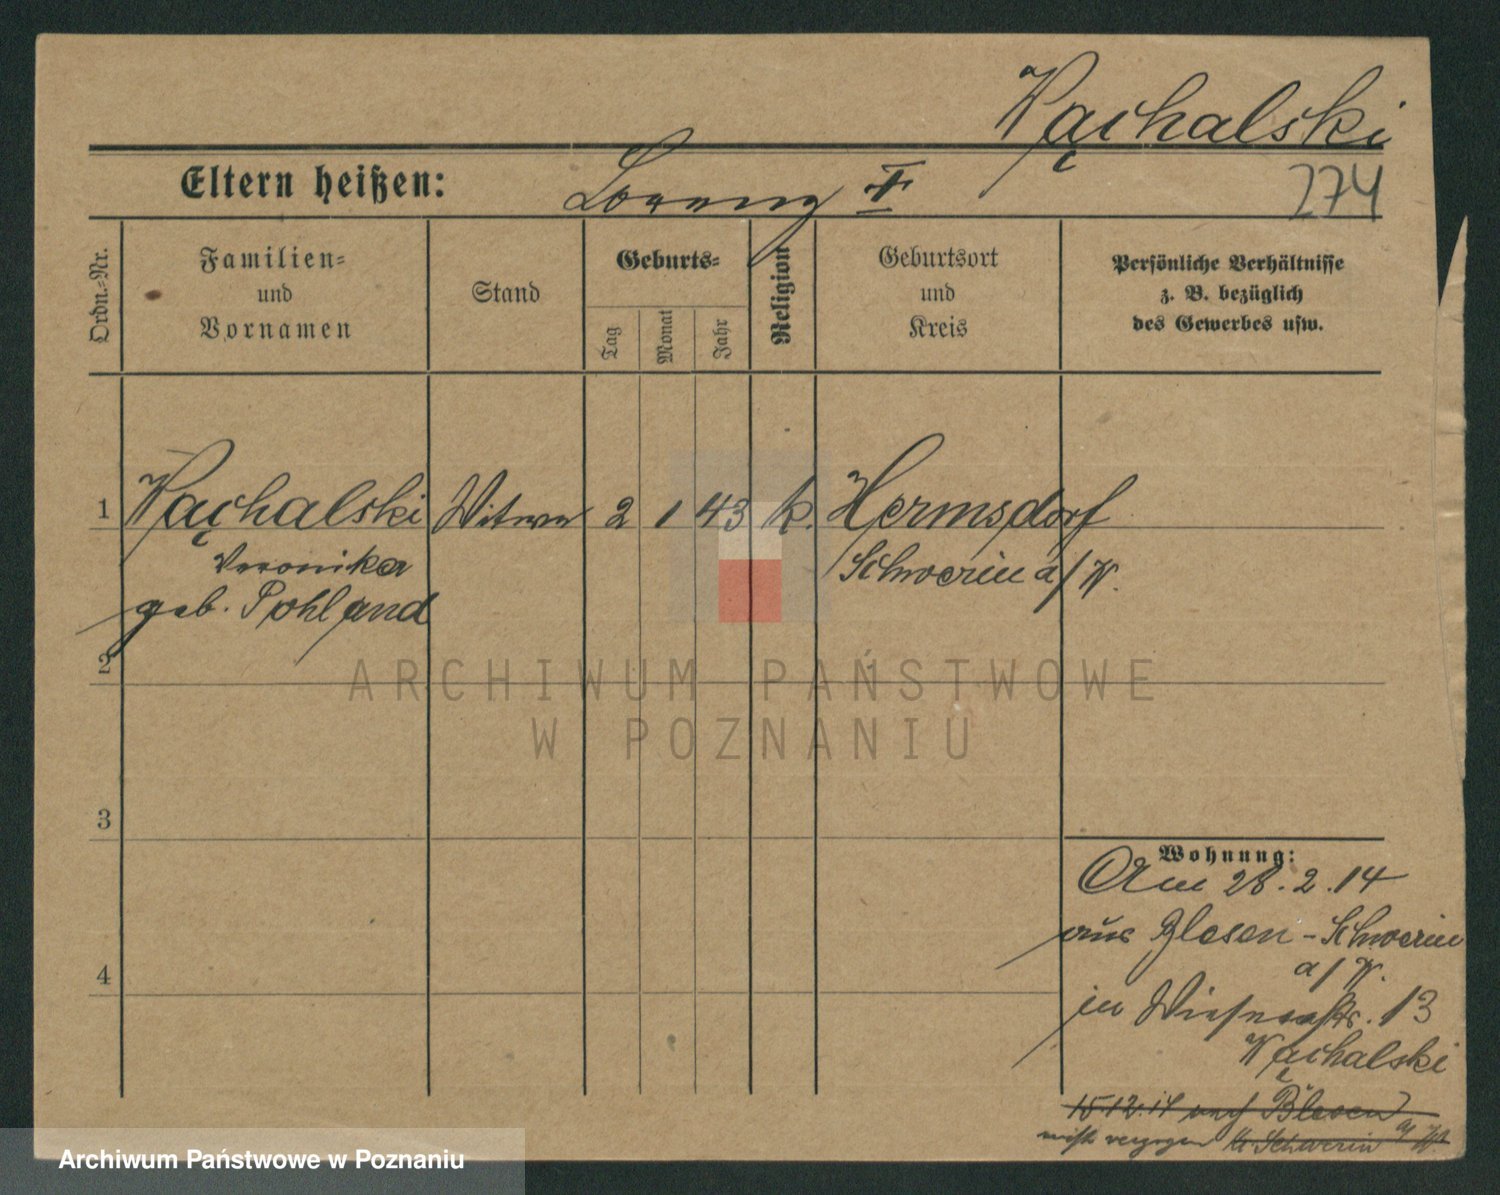 Wąchalski
Eltern heißen:
Lorenz †
274
Ordn.-Nr.
Familien-
und
Vornamen
Stand
Geburts-
Tag
Monat
Jahr
Religion
Geburtsort
und
Kreis
Persönliche Verhältnisse
z. B. bezüglich
des Gewerbes usw.
1 Wąchalski Witwe 2 1 43 k. Hermsdorf
Veronika Schwerin a/W.
geb. Pohland
2
ARCHIWUM PAŃSTWOWE
W POZNANIU
3
4
Wohnung:
Am 28.2.14
aus Blesen - Schwerin
a/W.
in Wiesenstr. 13
Wąchalski
15.12.14 nach Blesen
nicht verzogen Kr. Schwerin a/W.
Archiwum Państwowe w Poznaniu